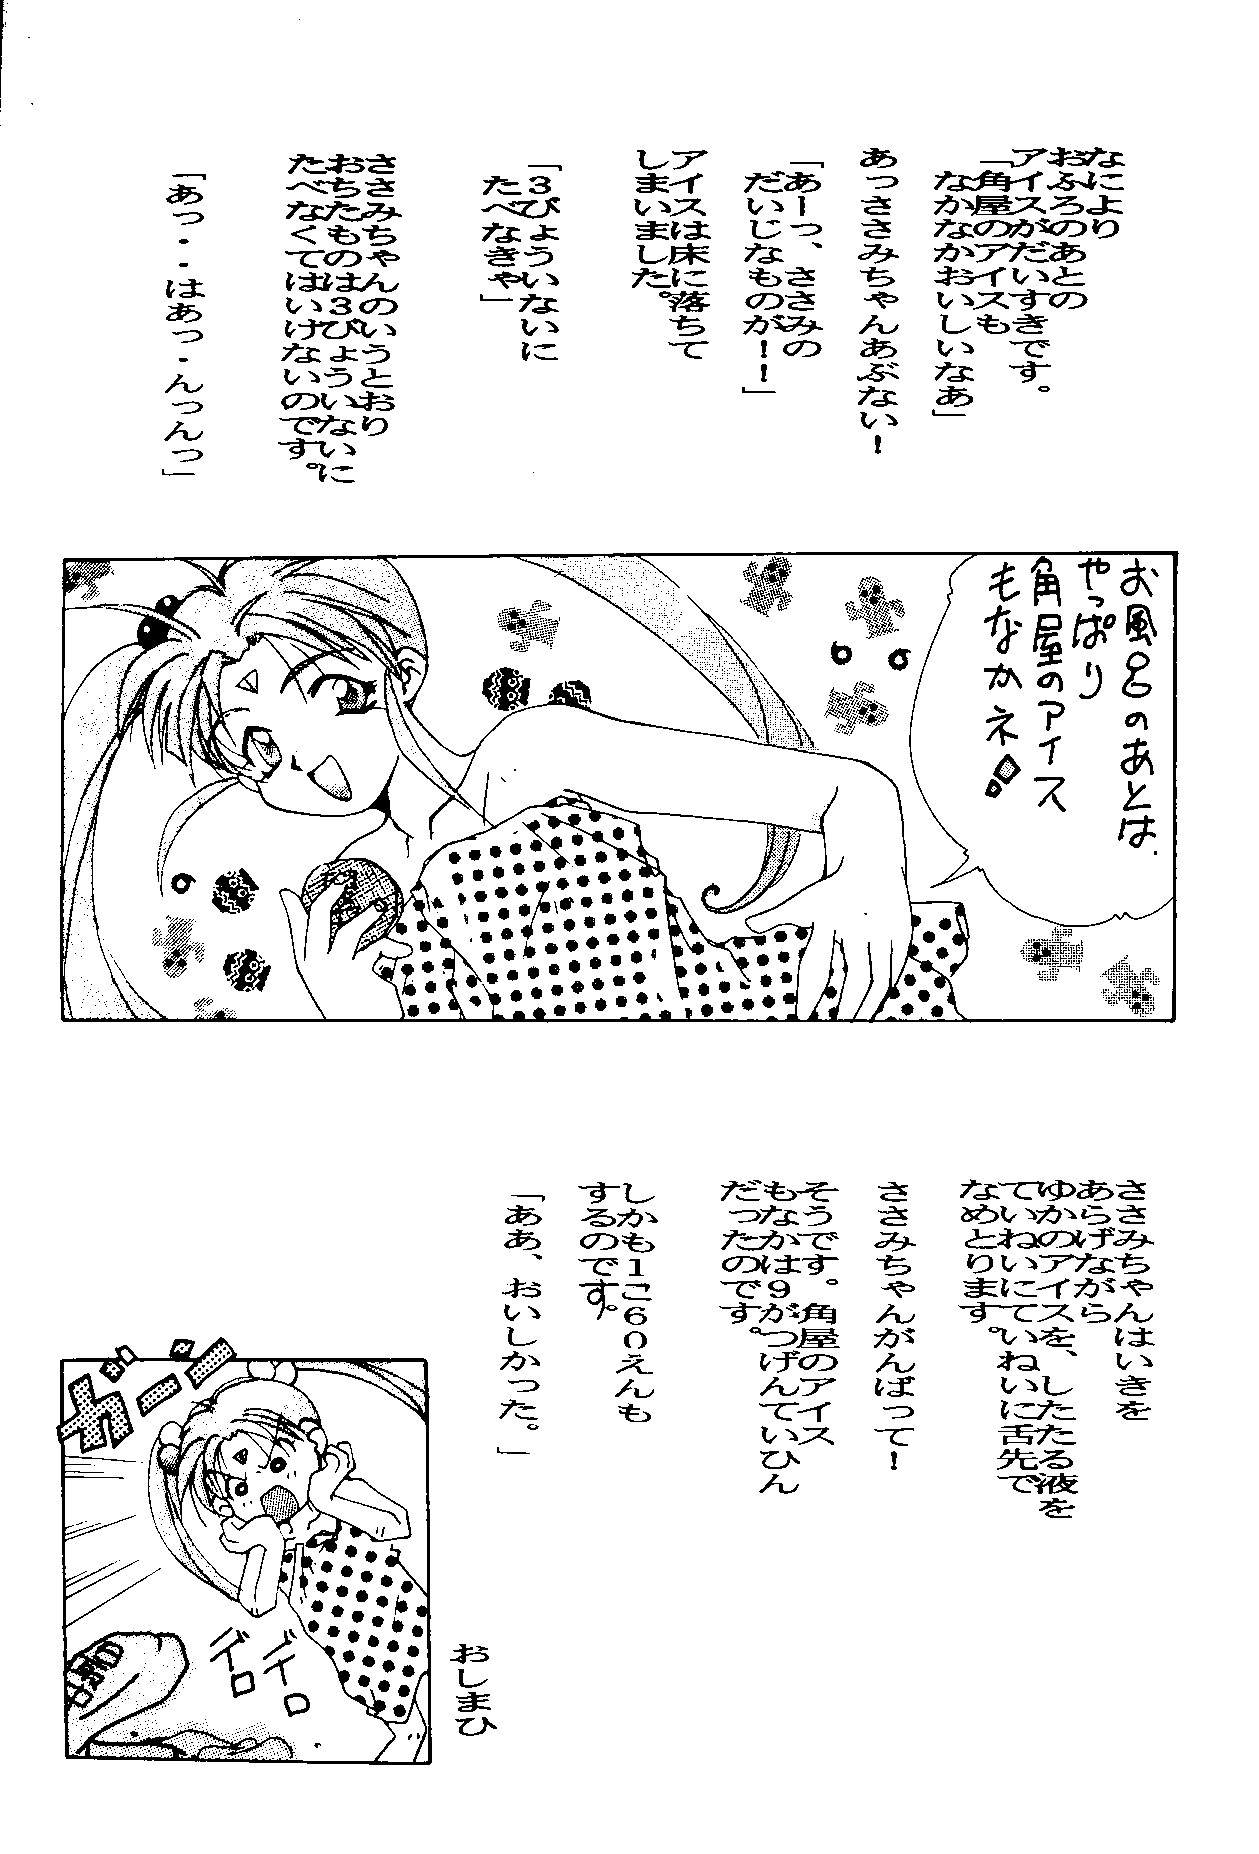 なにより
おふろのあとの
アイスがだいすきです。
「角屋のアイスも
なかなかおいしいなあ」
あっささみちゃんあぶない！
「あーっ、ささみの
だいじなものが！！」
アイスは床に落ちて
しまいました。
「３びょういないに
たべなきゃ」
ささみちゃんのいうとおり
おちたものは３びょういないに
たべなくてはいけないのです。
「あっ・・はあっ・んっんっ」
お風呂のあとは
やっぱり
角屋のアイス
もなかネ!
ささみちゃんはいきを
あらげながら
ゆかのアイスを、したたる液を
ていねいにていねいに舌先で
なめとります。
ささみちゃんがんばって！
そうです。角屋のアイス
もなかは９がつげんていひん
だったのです。
しかも１こ６０えんも
するのです。
「ああ、おいしかった。」
ガーン
ドロ
ドロ
おしまひ